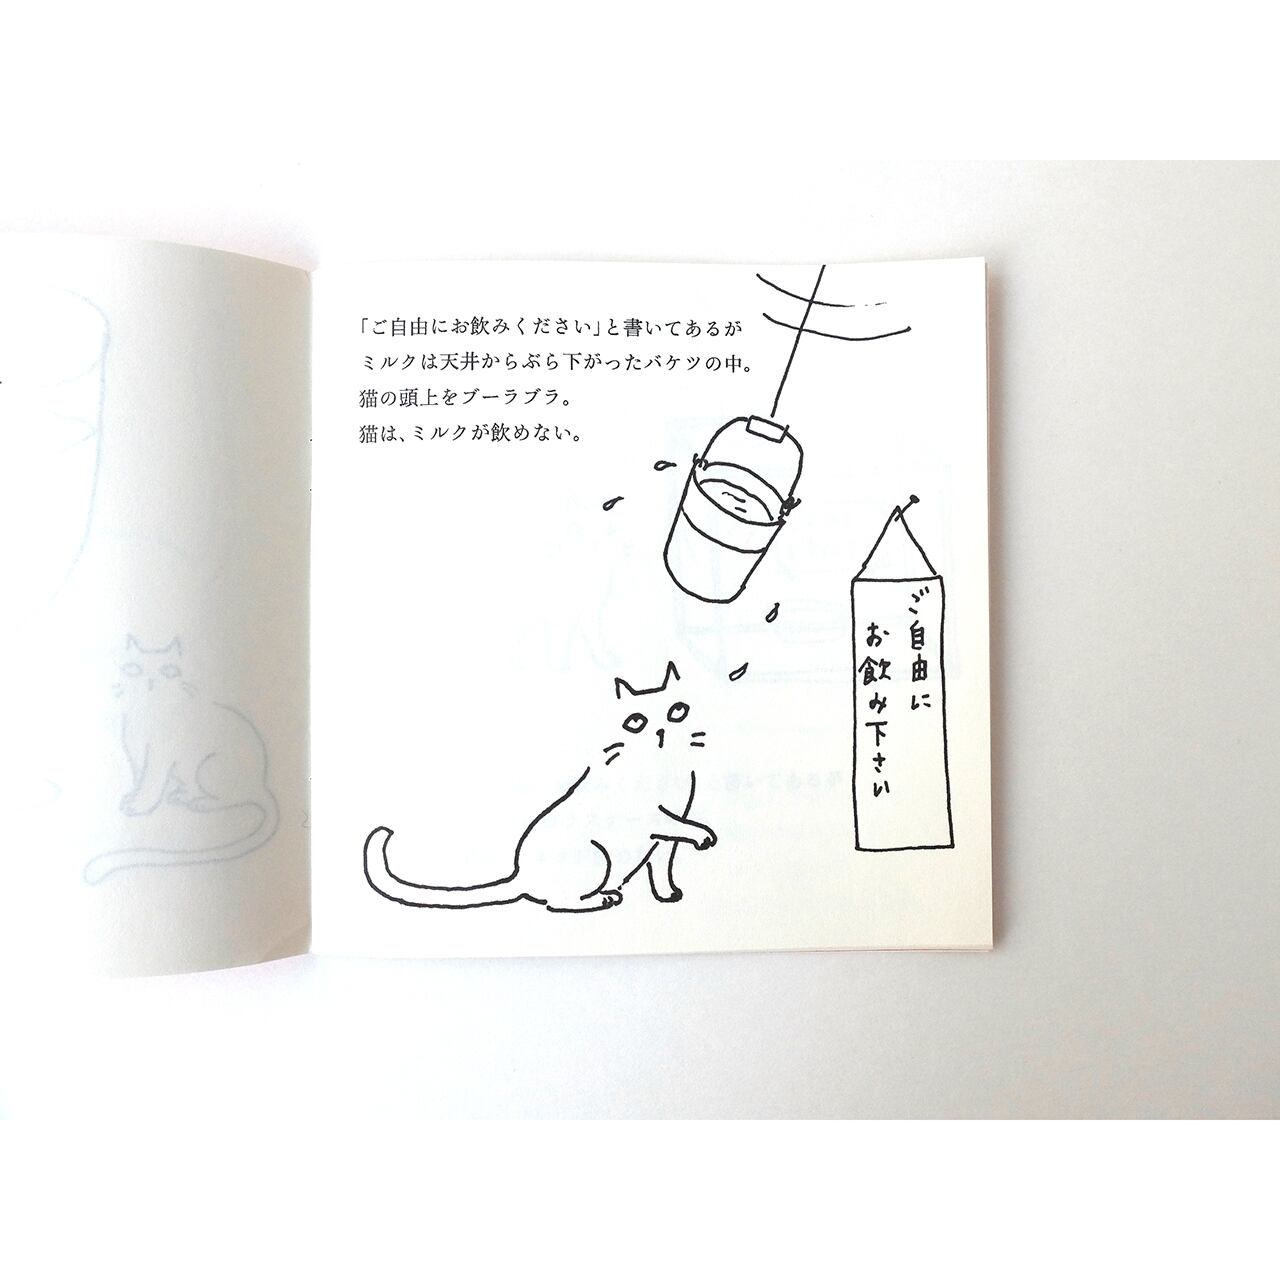 「ご自由にお飲みください」と書いてあるが
ミルクは天井からぶら下がったバケツの中。
猫の頭上をブーラブラ。
猫は、ミルクが飲めない。
ご自由に
お飲み下さい